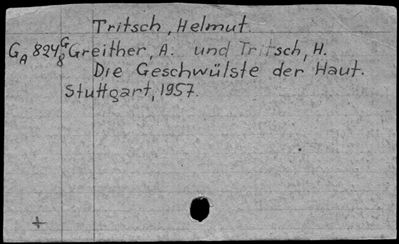 Tritsch, Helmut
GA 824 G/8 Greither, A. und Tritsch, H.
Die Geschwülste der Haut.
Stuttgart, 1957.